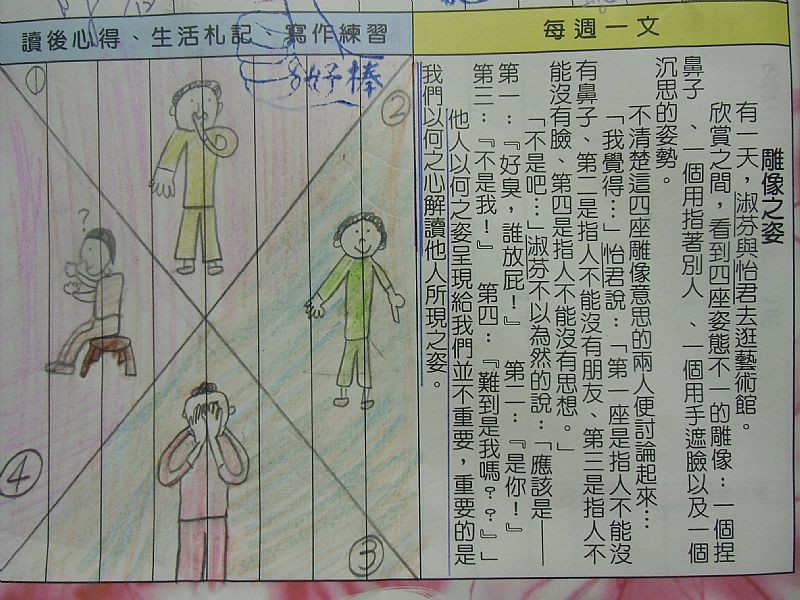 每週一文
雕像之姿
有一天，淑芬與怡君去逛藝術館。
欣賞之間，看到四座姿態不一的雕像：一個捏
鼻子、一個用指著別人、一個用手遮臉以及一個
沉思的姿勢。
不清楚這四座雕像意思的兩人便討論起來…
「我覺得…」怡君說：「第一座是指人不能沒
有鼻子、第二是指人不能沒有朋友、第三是指人不
能沒有臉、第四是指人不能沒有思想。」
「不是吧…」淑芬不以為然的說：「應該是——
第一：『好臭，誰放屁！』 第二：『是你！』
第三：『不是我！』 第四：『難到是我嗎？？』」
他人以何之姿呈現給我們並不重要，重要的是
我們以何之心解讀他人所現之姿。
讀後心得、生活札記、寫作練習
好棒
①
②
?
④
③